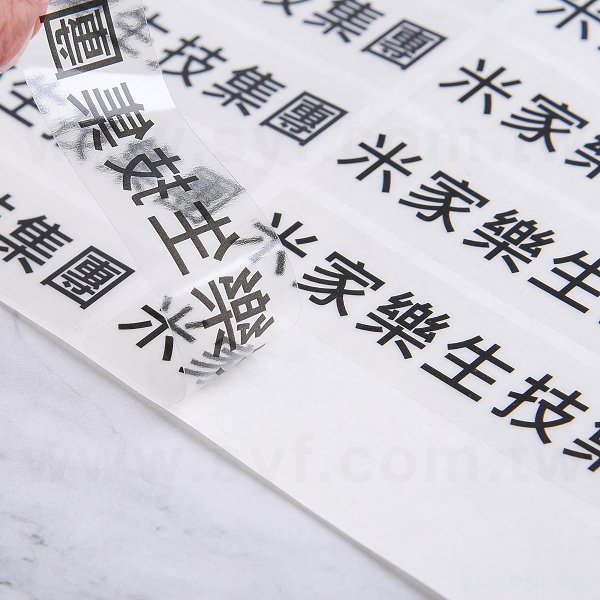 生技集團
米家
生技集團
米家樂生
技集團
米家樂生技集
米家樂生技集團
www.syf.com.tw